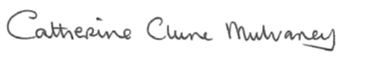 Catherine Clune Mulvaney